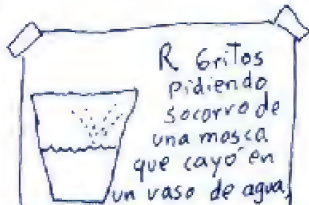 R Gritos
pidiendo
socorro de
una mosca
que cayó en
un vaso de agua,